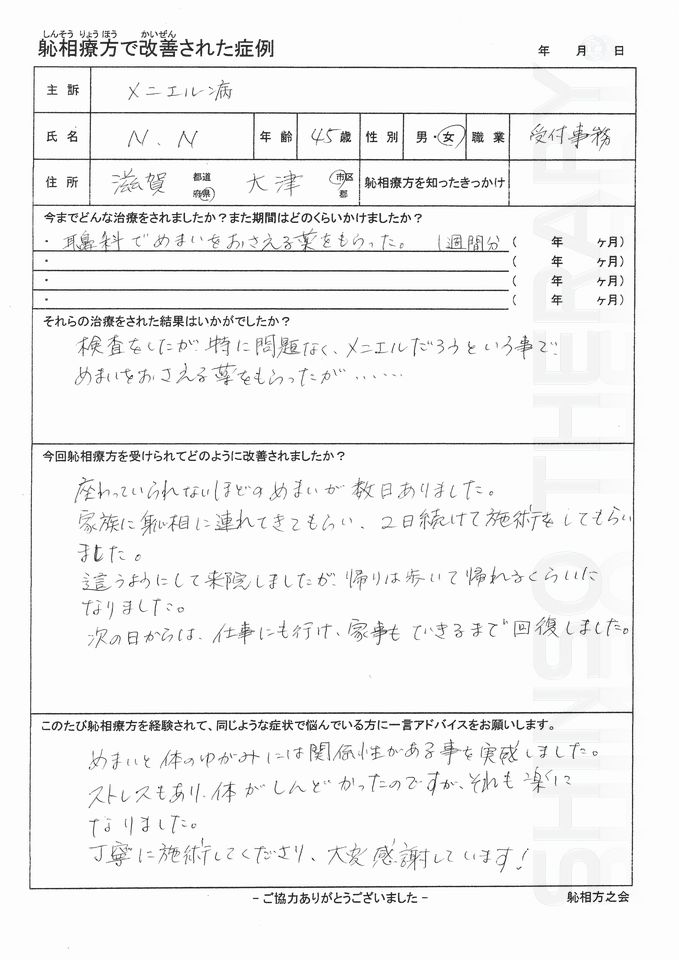 しんそう りょうほう かいぜん
恥相療方で改善された症例
年 月 日
主訴 メニエル病
氏名 N.N 年齢 45歳 性別 男・女 職業 受付事務
住所 滋賀 都道府県 大津 市区郡 恥相療方を知ったきっかけ
今までどんな治療をされましたか？また期間はどのくらいかけましたか？
・耳鼻科でめまいをおさえる薬をもらった。 1週間分 ( 年 ヶ月)
・ ( 年 ヶ月)
・ ( 年 ヶ月)
・ ( 年 ヶ月)
それらの治療をされた結果はいかがでしたか？
検査をしたが、特に問題なく、メニエルだろうという事で、
めまいをおさえる薬をもらったが……
今回恥相療方を受けられてどのように改善されましたか？
座わっていられないほどのめまいが数日ありました。
家族に恥相に連れてきてもらい、2日続けて施術をしてもらい
ました。
這うようにして来院しましたが、帰りは歩いて帰れるくらいに
なりました。
次の日からは、仕事にも行け、家事もできるまで回復しました。
このたび恥相療方を経験されて、同じような症状で悩んでいる方に一言アドバイスをお願いします。
めまいと体のゆがみには関係性がある事を実感しました。
ストレスもあり、体がしんどかったのですが、それも楽に
なりました。
丁寧に施術してくださり、大変感謝しています！
- ご協力ありがとうございました -
恥相方之会
SHINSO THERAPY